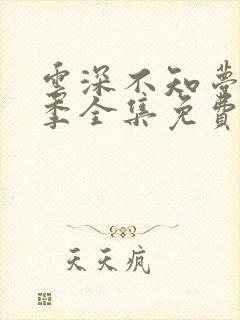 雲深不知夢
季全集免費
天天疯